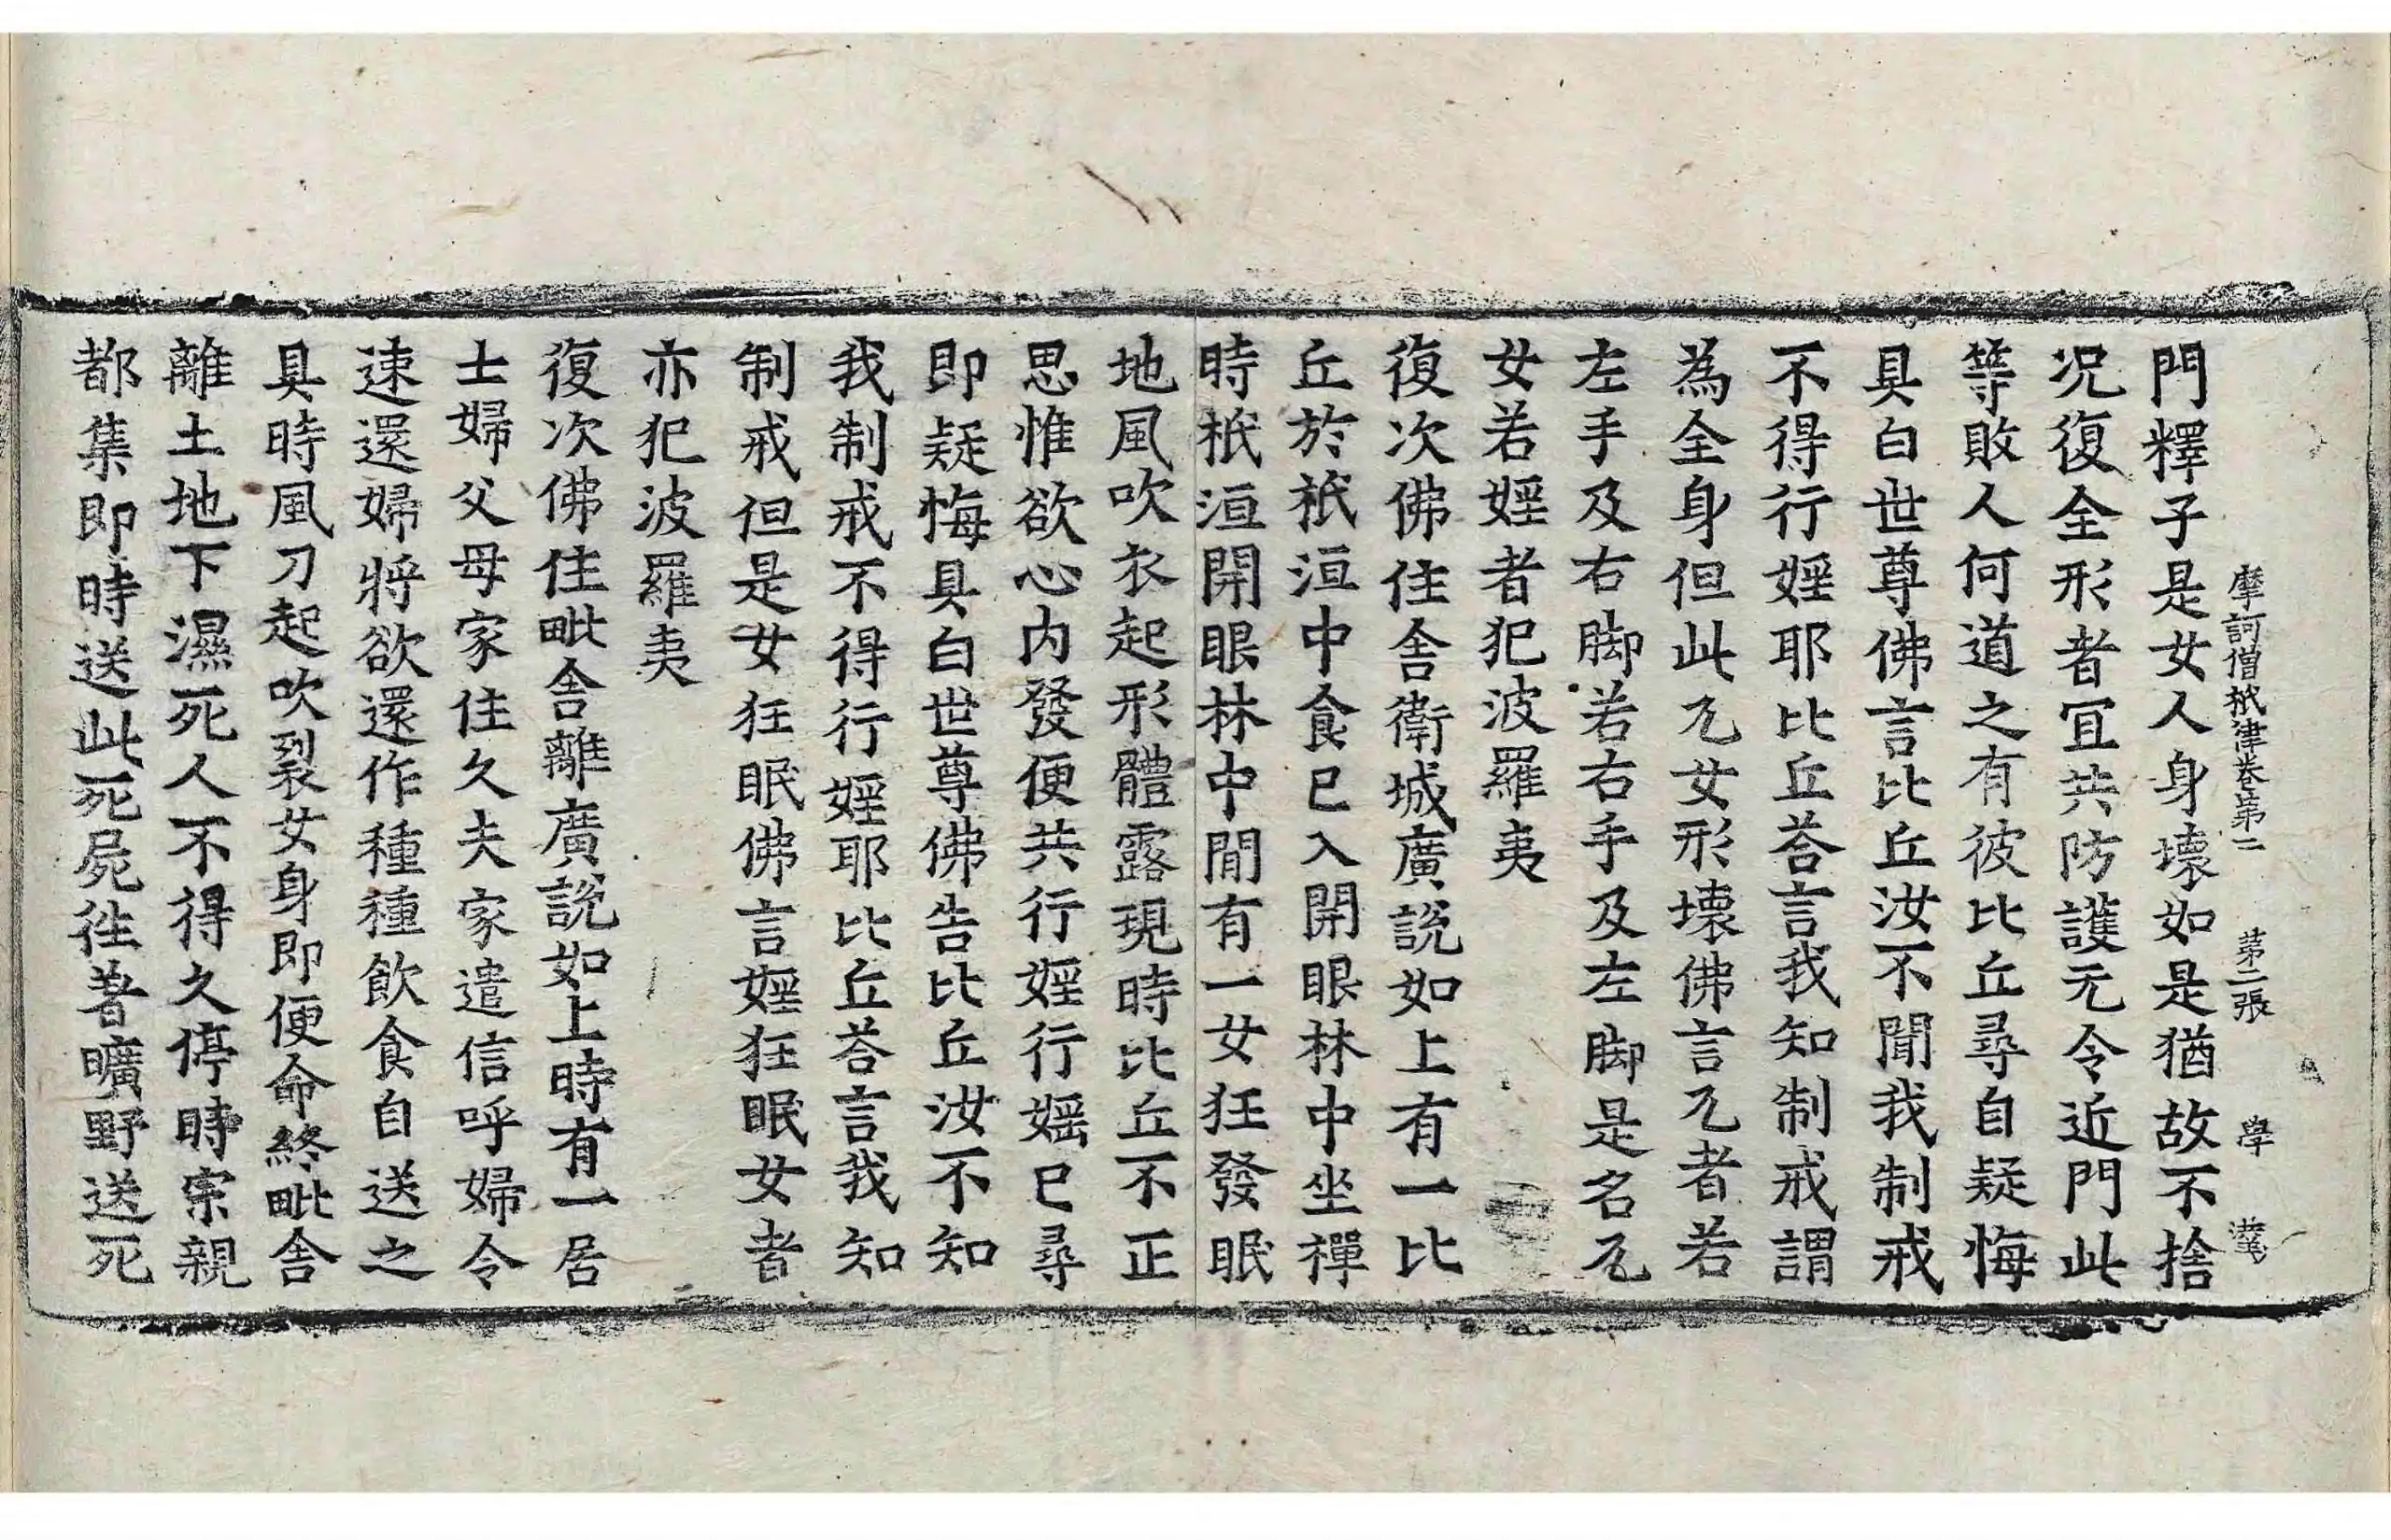 摩訶僧祇律卷第二 第二張 學
門釋子是女人身壞如是猶故不捨
况復全形者宜共防護无令近門此
等敗人何道之有彼比丘尋自疑悔
具白世尊佛言比丘汝不聞我制戒
不得行婬耶比丘荅言我知制戒謂
為全身但此兀女形壞佛言兀者若
左手及右脚若右手及左脚是名兀
女若婬者犯波羅夷
復次佛住舍衛城廣說如上有一比
丘於祇洹中食已入開眼林中坐禪
時祇洹開眼林中閒有一女狂發眠
地風吹衣起形體露現時比丘不正
思惟欲心内發便共行婬行婬已尋
即疑悔具白世尊佛告比丘汝不知
我制戒不得行婬耶比丘荅言我知
制戒但是女狂眠佛言婬狂眠女者
亦犯波羅夷
復次佛住毗舍離廣說如上時有一居
士婦父母家住久夫家遣信呼婦令
速還婦將欲還作種種飲食自送之
具時風刀起吹裂女身即便命終毗舍
離土地下濕死人不得久停時宗親
都集即時送此死屍徃著曠野送死